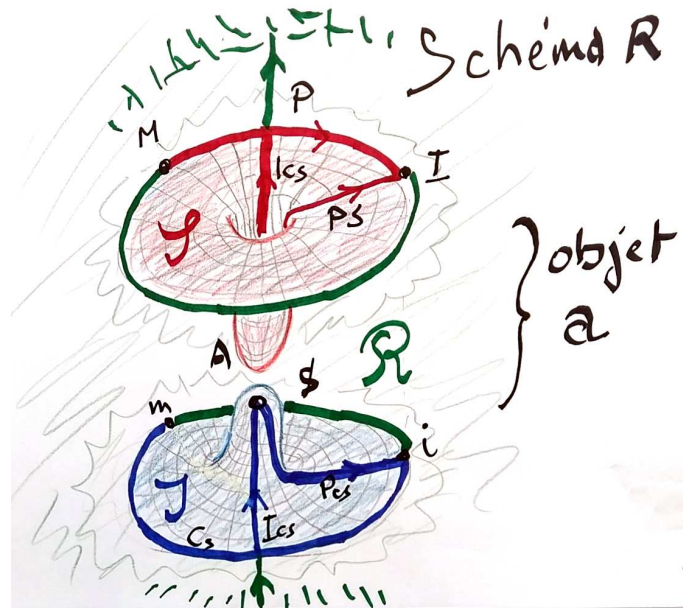 Schéma R
P
M
Ics
I
PS
S
objet
a
A
R
$
m
i
J
Pcs
Cs
Ics